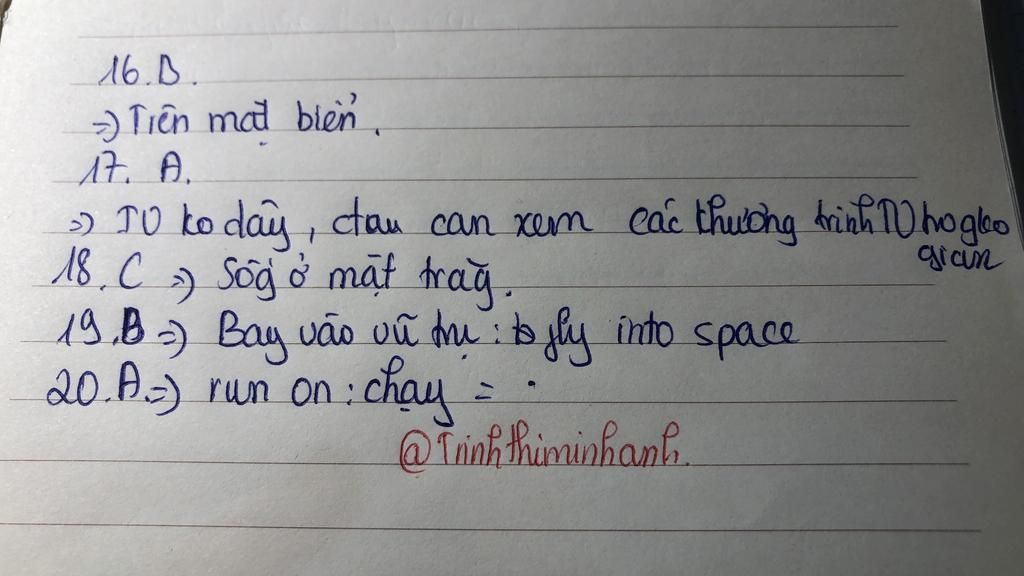 16. B.
=> Trên mặt biển.
17. A.
=> TV ko dây, ctau can xem các thương trình TV
gian
18. C => Sốg ở mặt trăg.
19. B => Bay vào vũ trụ : to fly into space
20. A. => run on : chạy = .
@Trinhthiminhanh.